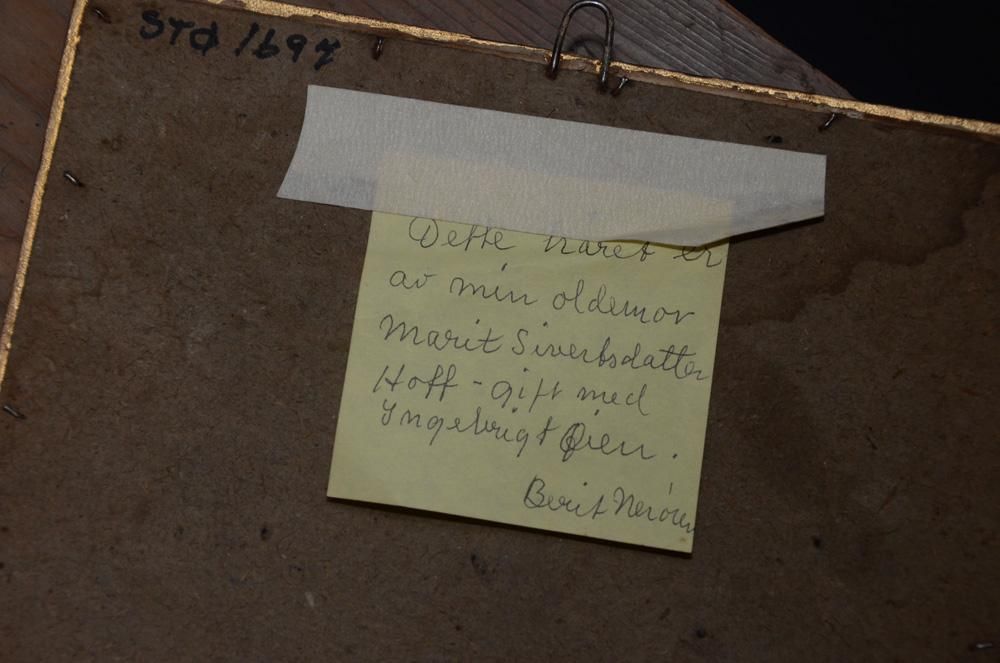 STØ 1697
Dette håret er
av min oldemor
Marit Sivertsdatter
Hoff - gift med
Yngebrigt Øien.
Berit Nerøien